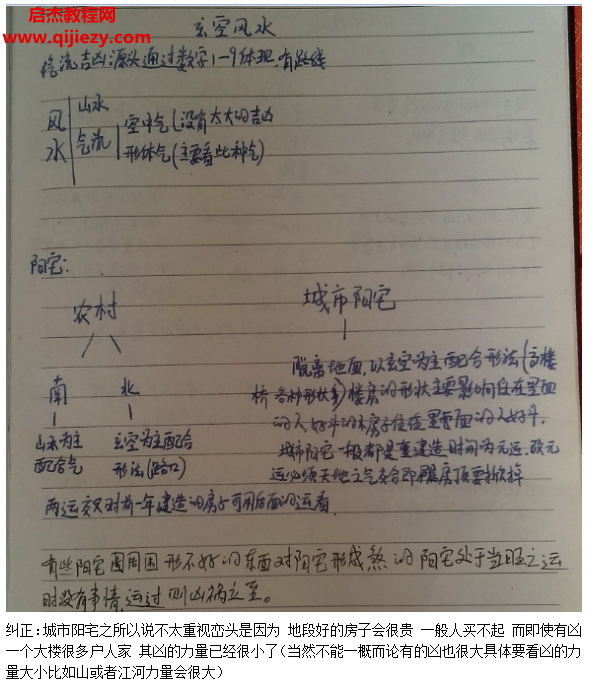 启杰教程网
www.qijiezy.com
玄空风水
气流吉凶源头通过数字1-9体现,有路线
风水
山水
气流
空中气(没有太大的吉凶
形体气(主要看此种气)
阳宅:
农村
城市阳宅
南
北
山水为主
配合气
玄空为主配合
形法(路口)
脱离地面,以玄空为主配合形法(高楼
桥 各种形状等)楼房的形状主要影响住在里面
的人 好斗的房子住在里面的人好斗。
城市阳宅一般都是重建造时间为元运,改元
运必须天地之气交合即把房顶要掀掉
两运交只对前一年建造的房子可用后面的运看
有些阳宅周围 形不好的东西对阳宅形成煞 的 阳宅处于当旺之运
时没有事情,运过 则凶祸立至。
纠正:城市阳宅之所以说不太重视峦头是因为 地段好的房子会很贵 一般人买不起 而即使有凶
一个大楼很多户人家 其凶的力量已经很小了(当然不能一概而论有的凶也很大具体要看凶的力
量大小比如山或者江河力量会很大)